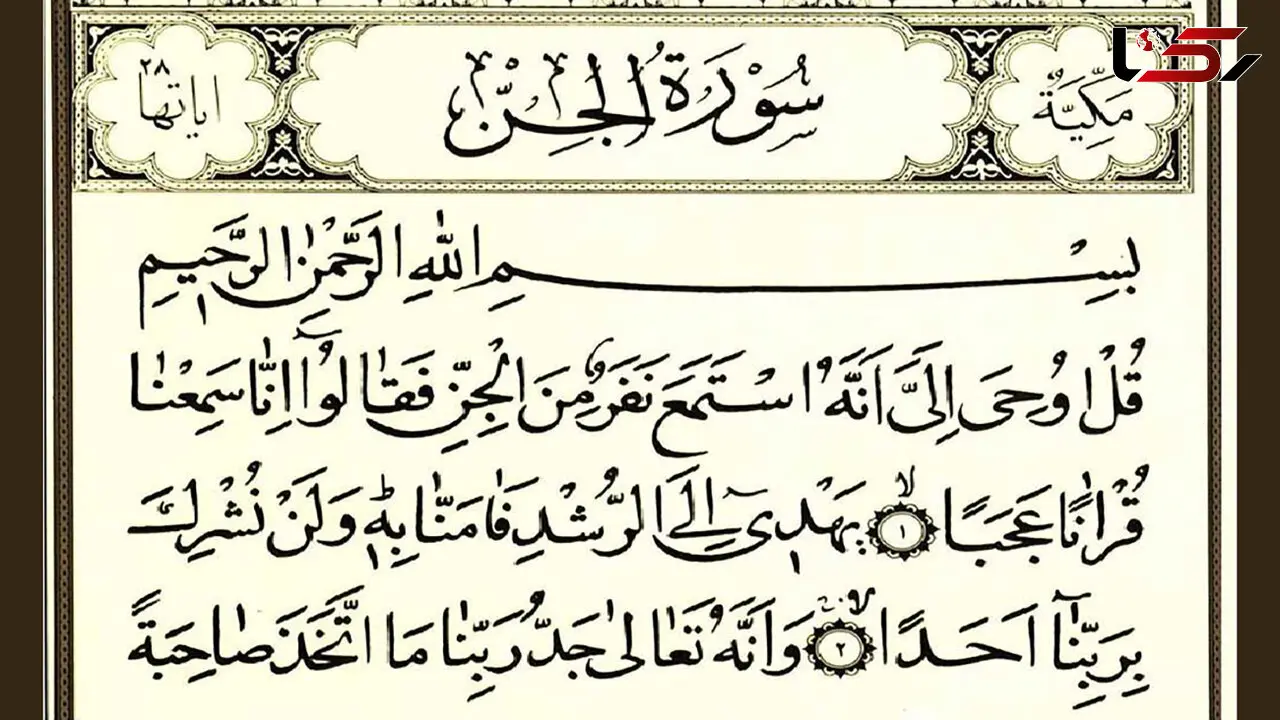 رکنا
مَكِّيَّةٌ
سُوْرَةُ الْجِنّ
اٰیاتها ٢٨
بِسْمِ اللّٰهِ الرَّحْمٰنِ الرَّحِيْمِ
قُلْ اُوْحِىَ اِلَىَّ اَنَّهُ اسْتَمَعَ نَفَرٌ مِنَ الْجِنِّ فَقٰالُوا اِنّٰا سَمِعْنٰا
قُرْاٰنًا عَجَبًا ﴿١﴾ يَهْدٖى اِلَى الرُّشْدِ فَاٰمَنّٰا بِهٖ وَلَنْ نُشْرِكَ
بِرَبِّنٰا اَحَدًا ﴿٢﴾ وَاَنَّهُ تَعٰالىٰ جَدُّ رَبِّنٰا مَا اتَّخَذَ صٰاحِبَةً